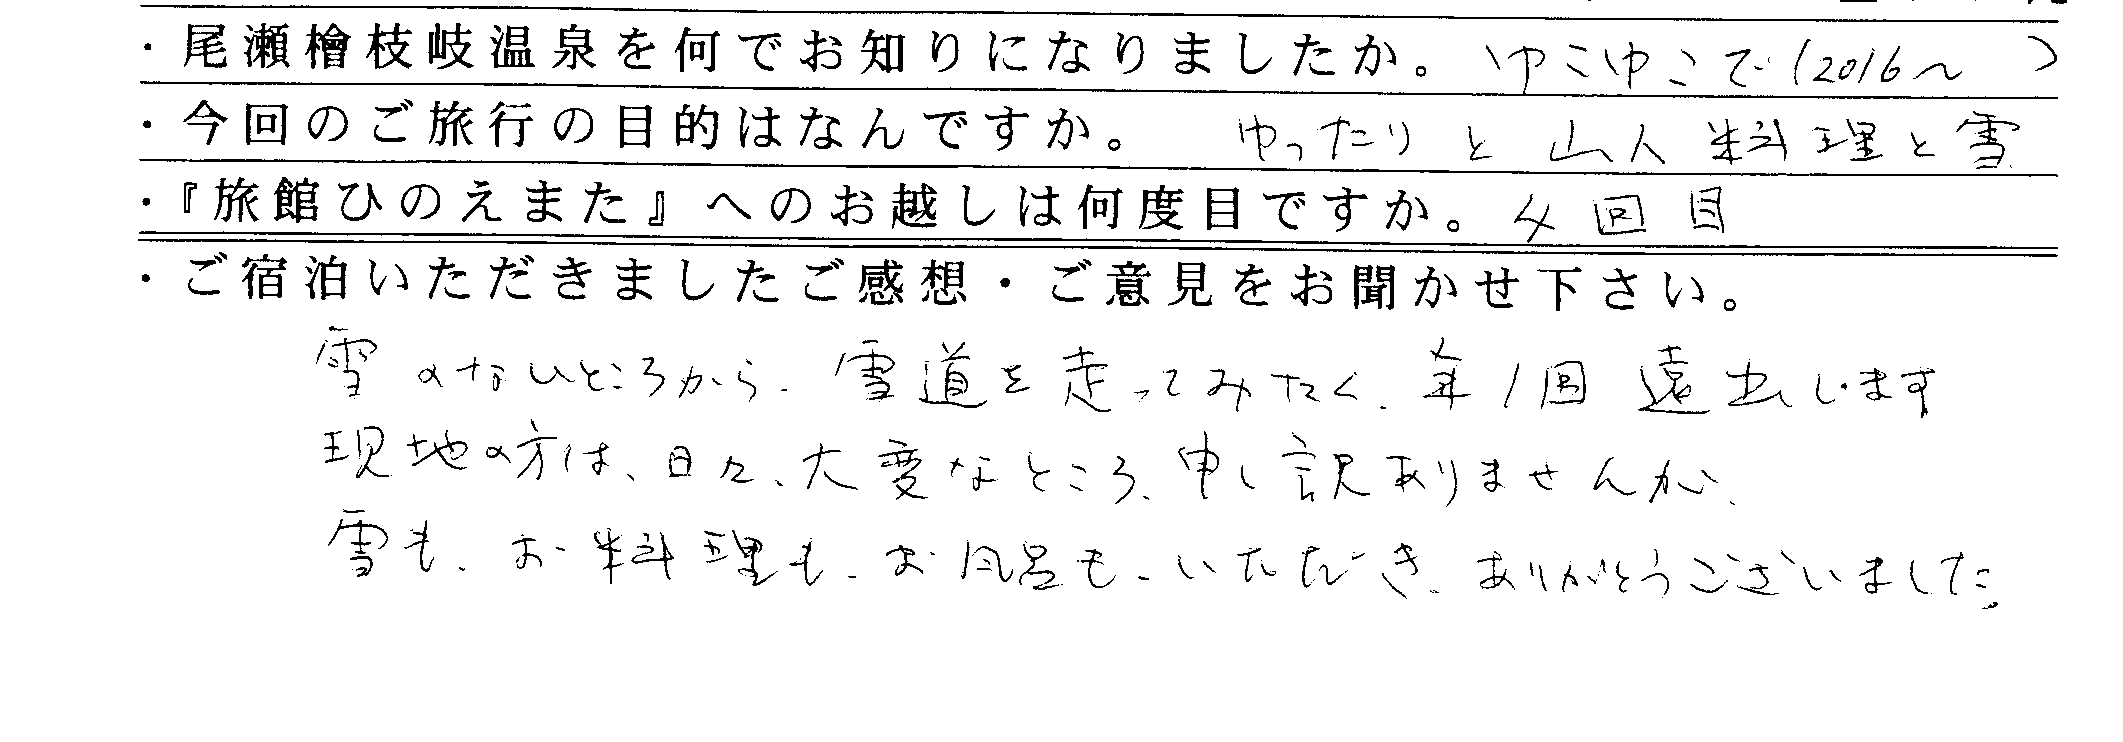 ・尾瀬檜枝岐温泉を何でお知りになりましたか。 ゆこゆこで(2016〜 )
・今回のご旅行の目的はなんですか。 ゆったりと山人料理と雪
・『旅館ひのえまた』へのお越しは何度目ですか。 4回目
・ご宿泊いただきましたご感想・ご意見をお聞かせ下さい。
雪のないところから、雪道を走ってみたく、年1回遠出します
現地の方は、日々、大変なところ、申し訳ありませんが、
雪も、お料理も、お風呂も、いただき、ありがとうございました。